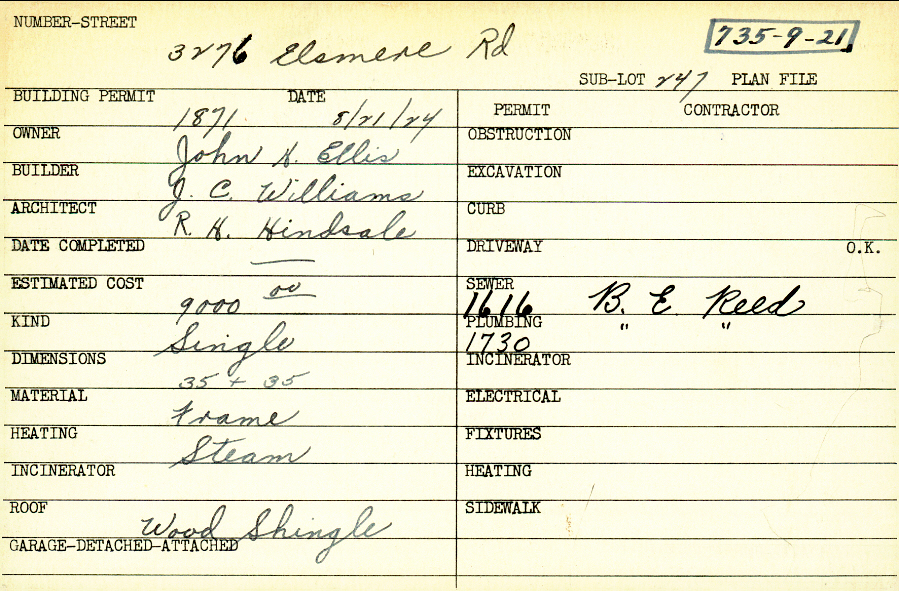 NUMBER-STREET
3276 Elsmere Rd
735-9-21
SUB-LOT 247 PLAN FILE
BUILDING PERMIT DATE
1871 8/21/24
PERMIT CONTRACTOR
OWNER
John H. Ellis
OBSTRUCTION
BUILDER
J. C. Williams
EXCAVATION
ARCHITECT
R. H. Hindsale
CURB
DATE COMPLETED
—
DRIVEWAY O.K.
ESTIMATED COST
9000 00
SEWER
1616 B. E. Reed
KIND
Single
PLUMBING
1730 " "
DIMENSIONS
35 + 35
INCINERATOR
MATERIAL
Frame
ELECTRICAL
HEATING
Steam
FIXTURES
INCINERATOR
HEATING
ROOF
Wood Shingle
SIDEWALK
GARAGE-DETACHED-ATTACHED